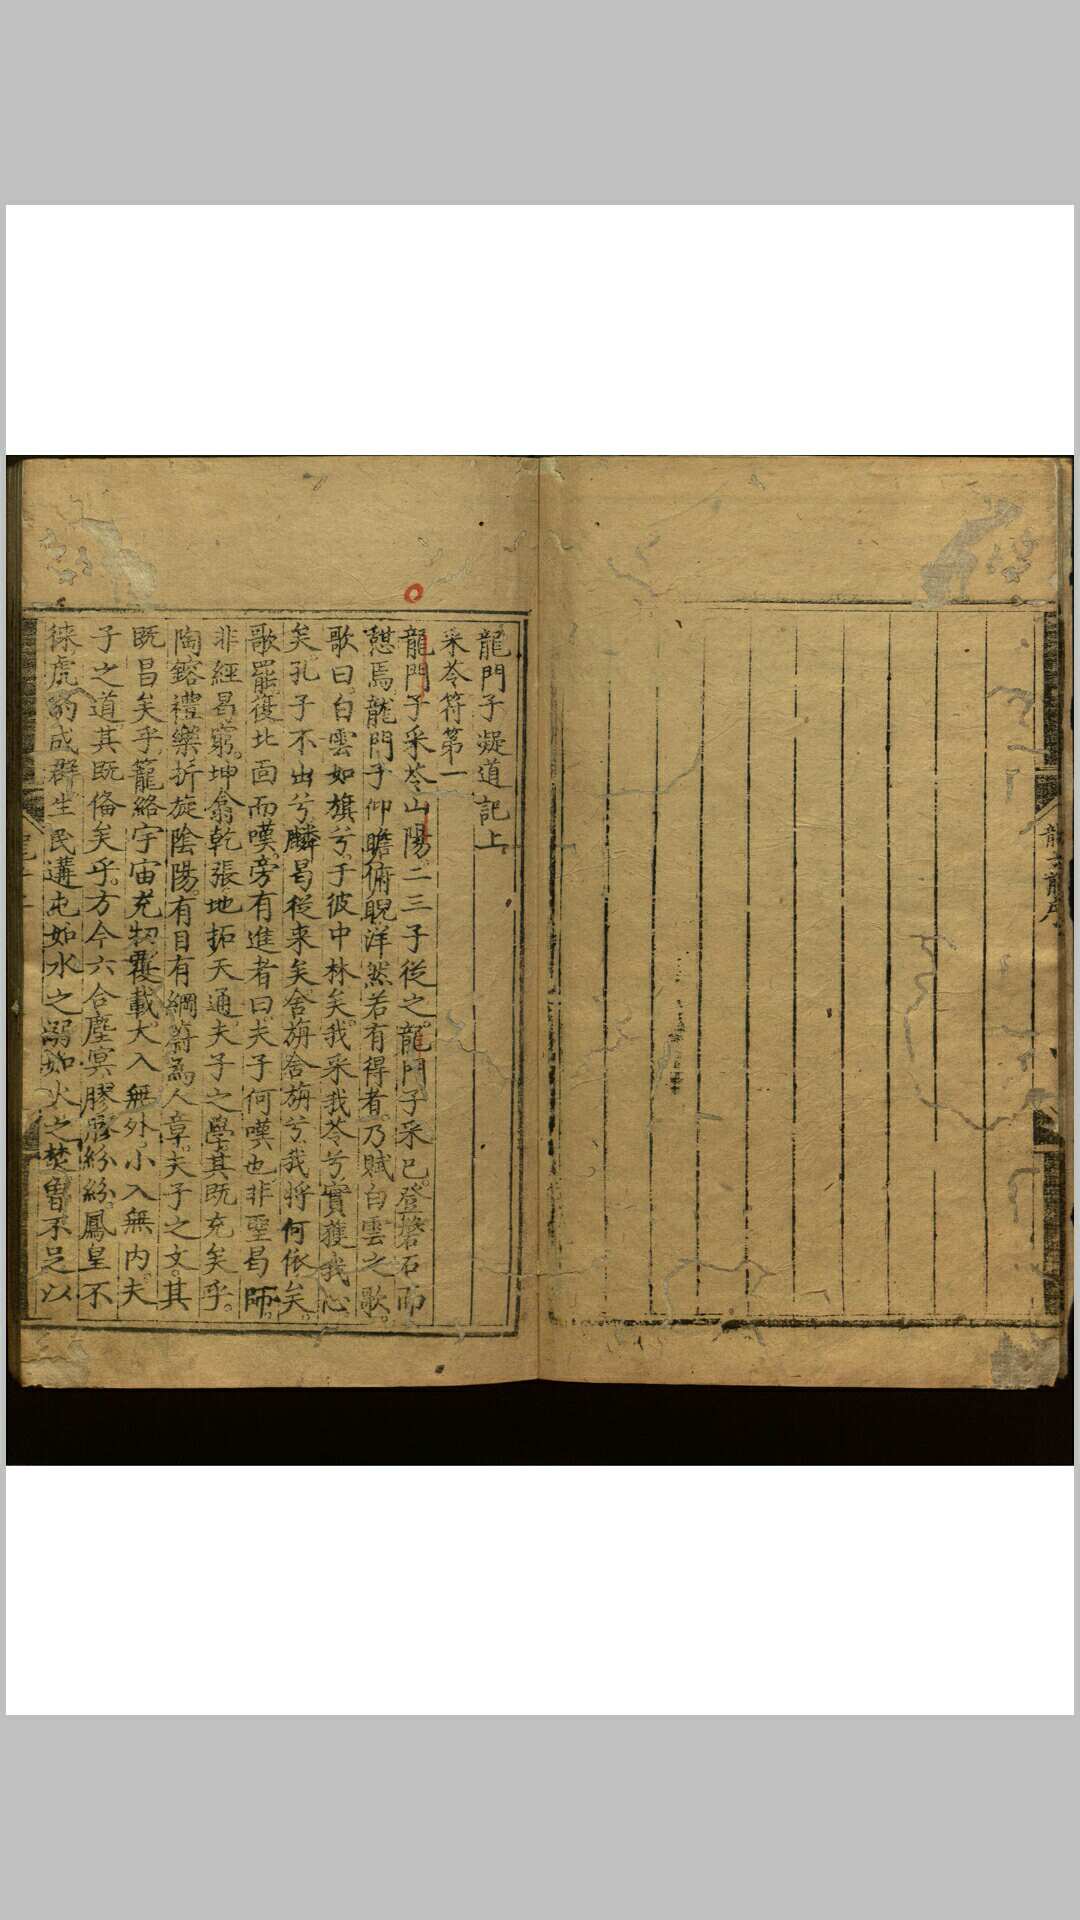 龍門子凝道記上
采苓符第一
龍門子采苓山陽二三子從之龍門子采已登磐石而
憇焉龍門子仰瞻俯睨洋然若有得者乃賦白雲之歌
歌曰白雲如旗兮于彼中林矣我采我苓兮實獲我心
矣孔子不出兮麟曷從来矣舍旃舍旃兮我將何依矣
歌罷復北面而嘆旁有進者曰夫子何嘆也非聖曷師
非經曷窮坤翕乾張地拓天通夫子之學其既充矣乎
陶鎔禮樂折旋陰陽有目有綱蔚為人章夫子之文其
既昌矣乎籠絡宇宙充牣覆載大入無外小入無内夫
子之道其既俻矣乎方今六合塵冥膠膠紛紛鳳皇不
徠虎豹成群生民遘屯如水之溺如火之焚曾不足以